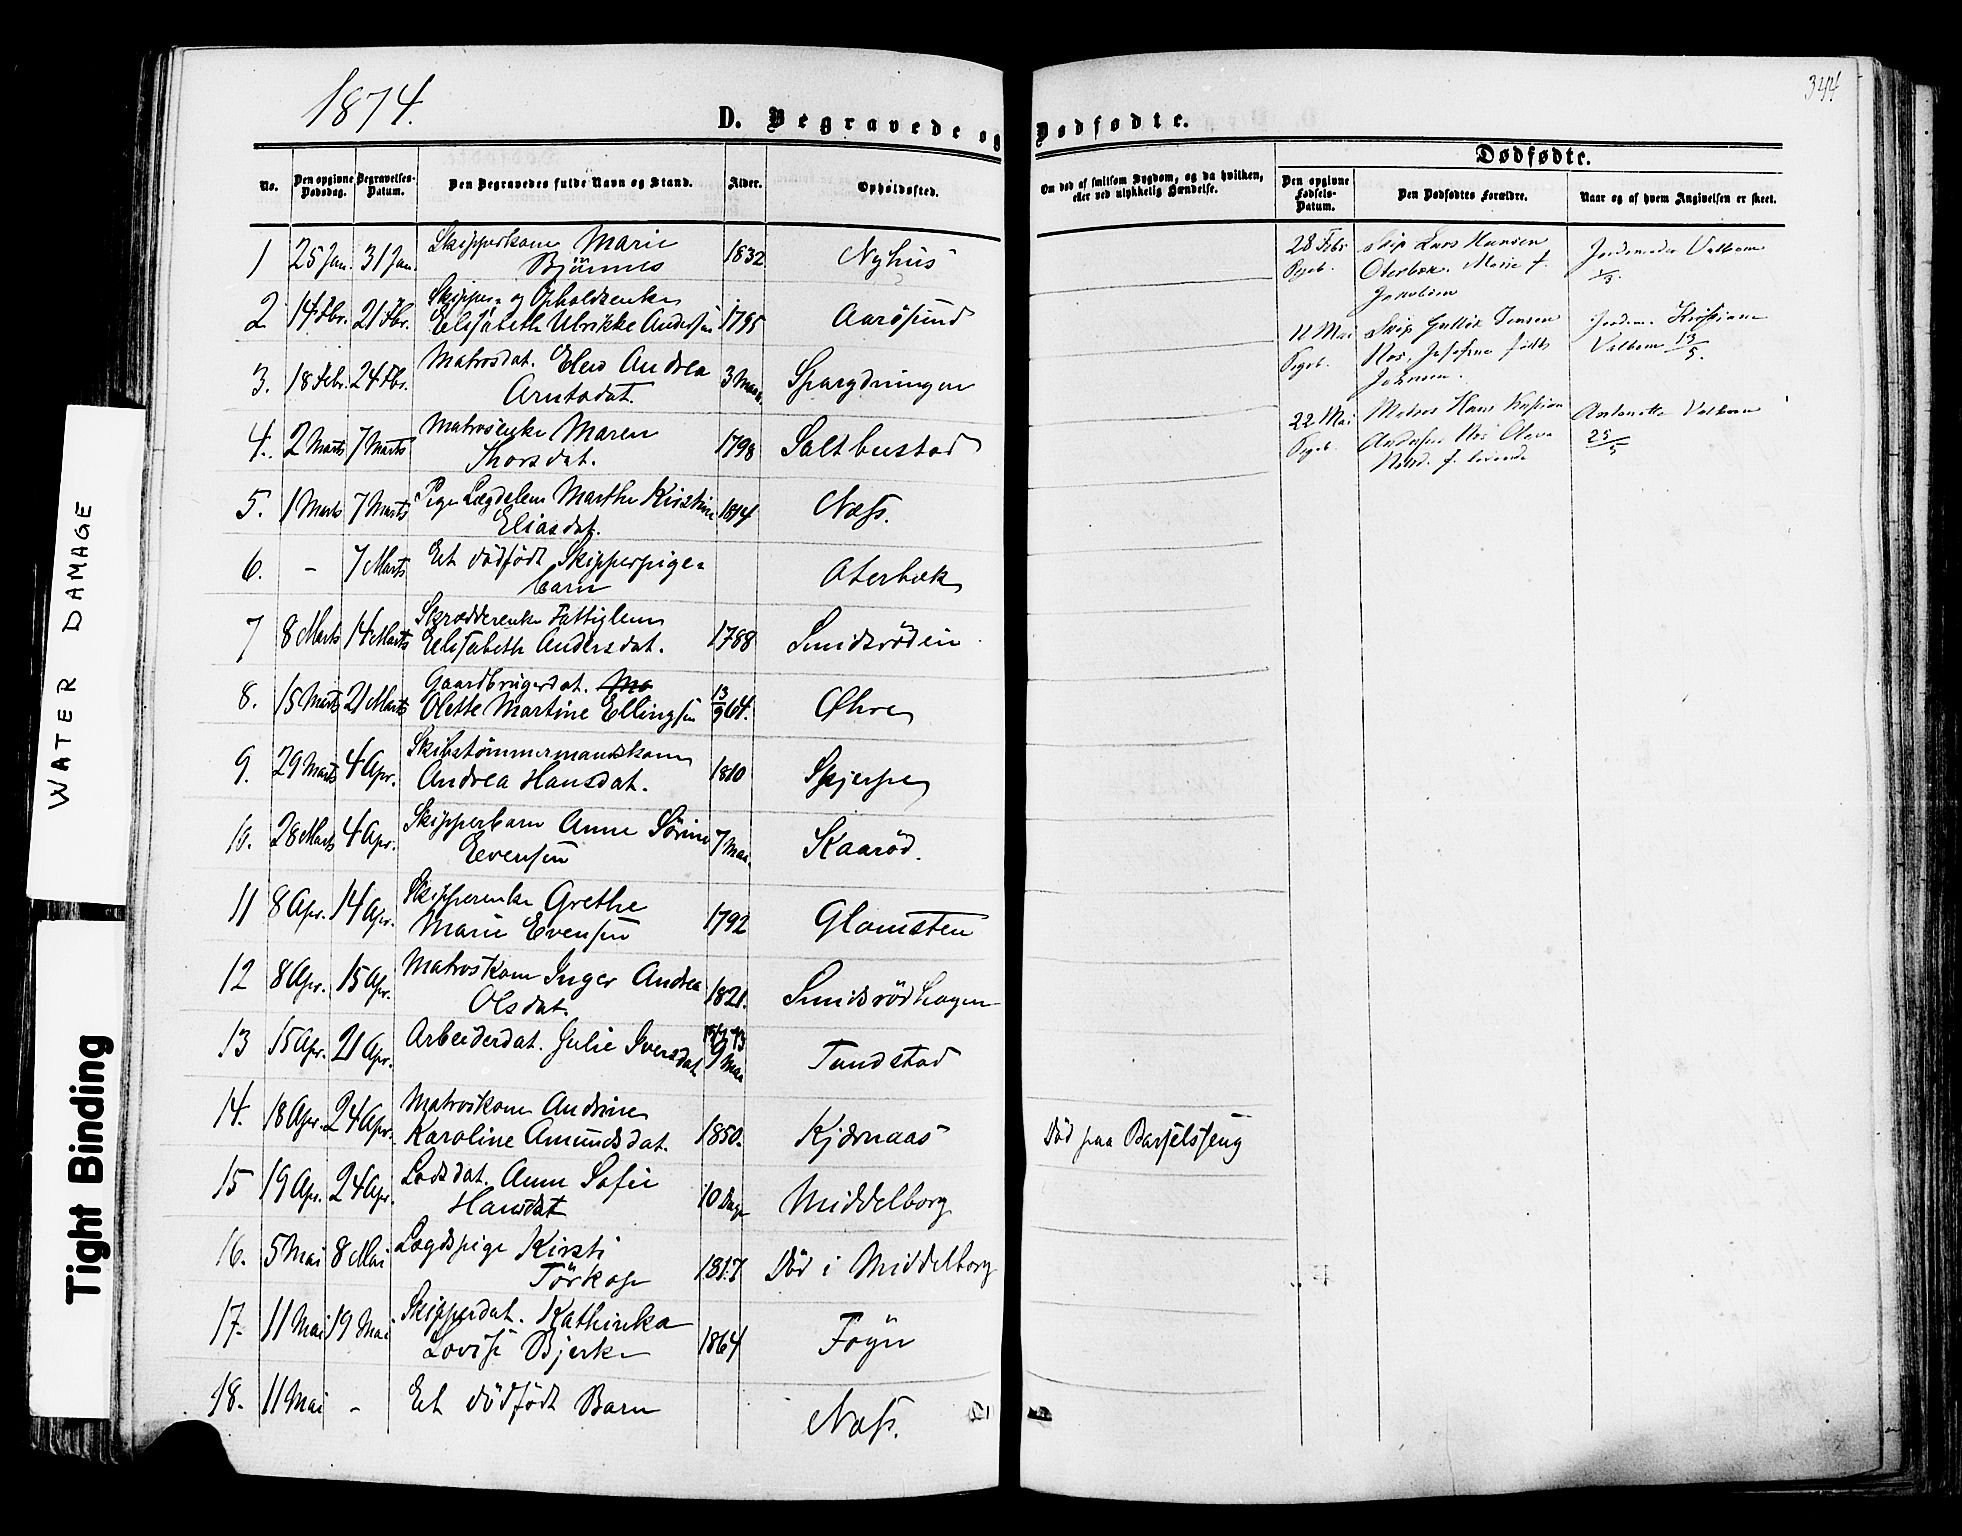 1874.
344
D. Begravede og Dødfødte.
Dødfødte.
No.
Den opgivne Dødsdag.
Begravelses-Datum.
Den Begravedes fulde Navn og Stand.
Alder.
Opholdssted.
Om død af smitsom Sygdom, og da hvilken, eller ved ulykkelig Hændelse.
Den opgivne Fødsels-Datum.
Den Dødfødtes Forældre.
Naar og af hvem Angivelsen er skeet.
1 25 Jan. 31 Jan. Skipperkone Marie 1832 Nyhus
Bjønnes
2 14 Fbr. 21 Fbr. Skipper- og Opholdsenke
Elisabeth Ulrikke Andersen 1795 Aarøsund
3. 18 Febr. 24 Fbr. Matrosdat. Elen Andrea 3 Maan.
Arntsdat.
4. 2 Marts 7 Marts Matrosenke Maren 1798 Saltbustad
Thorsdat.
5. 1 Marts 7 Marts Pige Lægdslem Marthe Kirstine 1814 Næss.
Eliasdat.
6. - 7 Marts Et dødfødt Skipperpige- Oterbæk
barn
7 8 Marts 14 Marts Skrædderenke Fattiglem
Elisabeth Andersdat. 1788 Smidsrødein
8. 15 Marts 21 Marts Gaardbrugerdat. Ma
Olette Martine Ellingsen 13/9 64. Øhre
9. 29 Marts 4 Apr. Skibstømmermandskone
Andrea Hansdat. 1810 Skjerpe
10. 28 Marts 4 Apr. Skipperbarn Anne Sørine 7 Maa. Kaarød.
Evensen
11 8 Apr. 14 Apr. Skipperenke Grethe
Marie Evensen 1792 Glomsten
12 8 Apr. 15 Apr. Matroskone Inger Andrea 1821. Smidsrødhagen
Olsdat.
13 15 Apr. 21 Apr. Arbeiderdat. Julie Iversdat 9 Maa Tandstad
14. 18 Apr. 24 Apr. Matroskone Andrine
Karoline Amundsdat. 1850. Kjærnaas Død paa Barselseng
15 19 Apr. 24 Apr. Lodsdat. Anne Sofie 10 Dage Middelborg
Hansdat
16. 5 Mai 8 Mai Lægdspige Kirsti 1817 Død i Middelborg
Törkop
17. 11 Mai 19 Mai Skipperdat. Kathinka
Lovise Bjerke 1864 Føyn
18. 11 Mai - Et dødfødt Barn Næss.
28 Febr Skip Lars Hansen Jordemoder Valborn
Pigeb. Oterbæk. Marie f. 1/3
Jakobsen
11 Mai Skip Jensen Jordem. Kristiane
Pigeb. Næs, Josefine født Valborn 13/5.
22 Mai Matros Hans Kristian Antonette Valborn
Pigeb. Andersen Næs Olava 25/5
WATER DAMAGE
Tight Binding